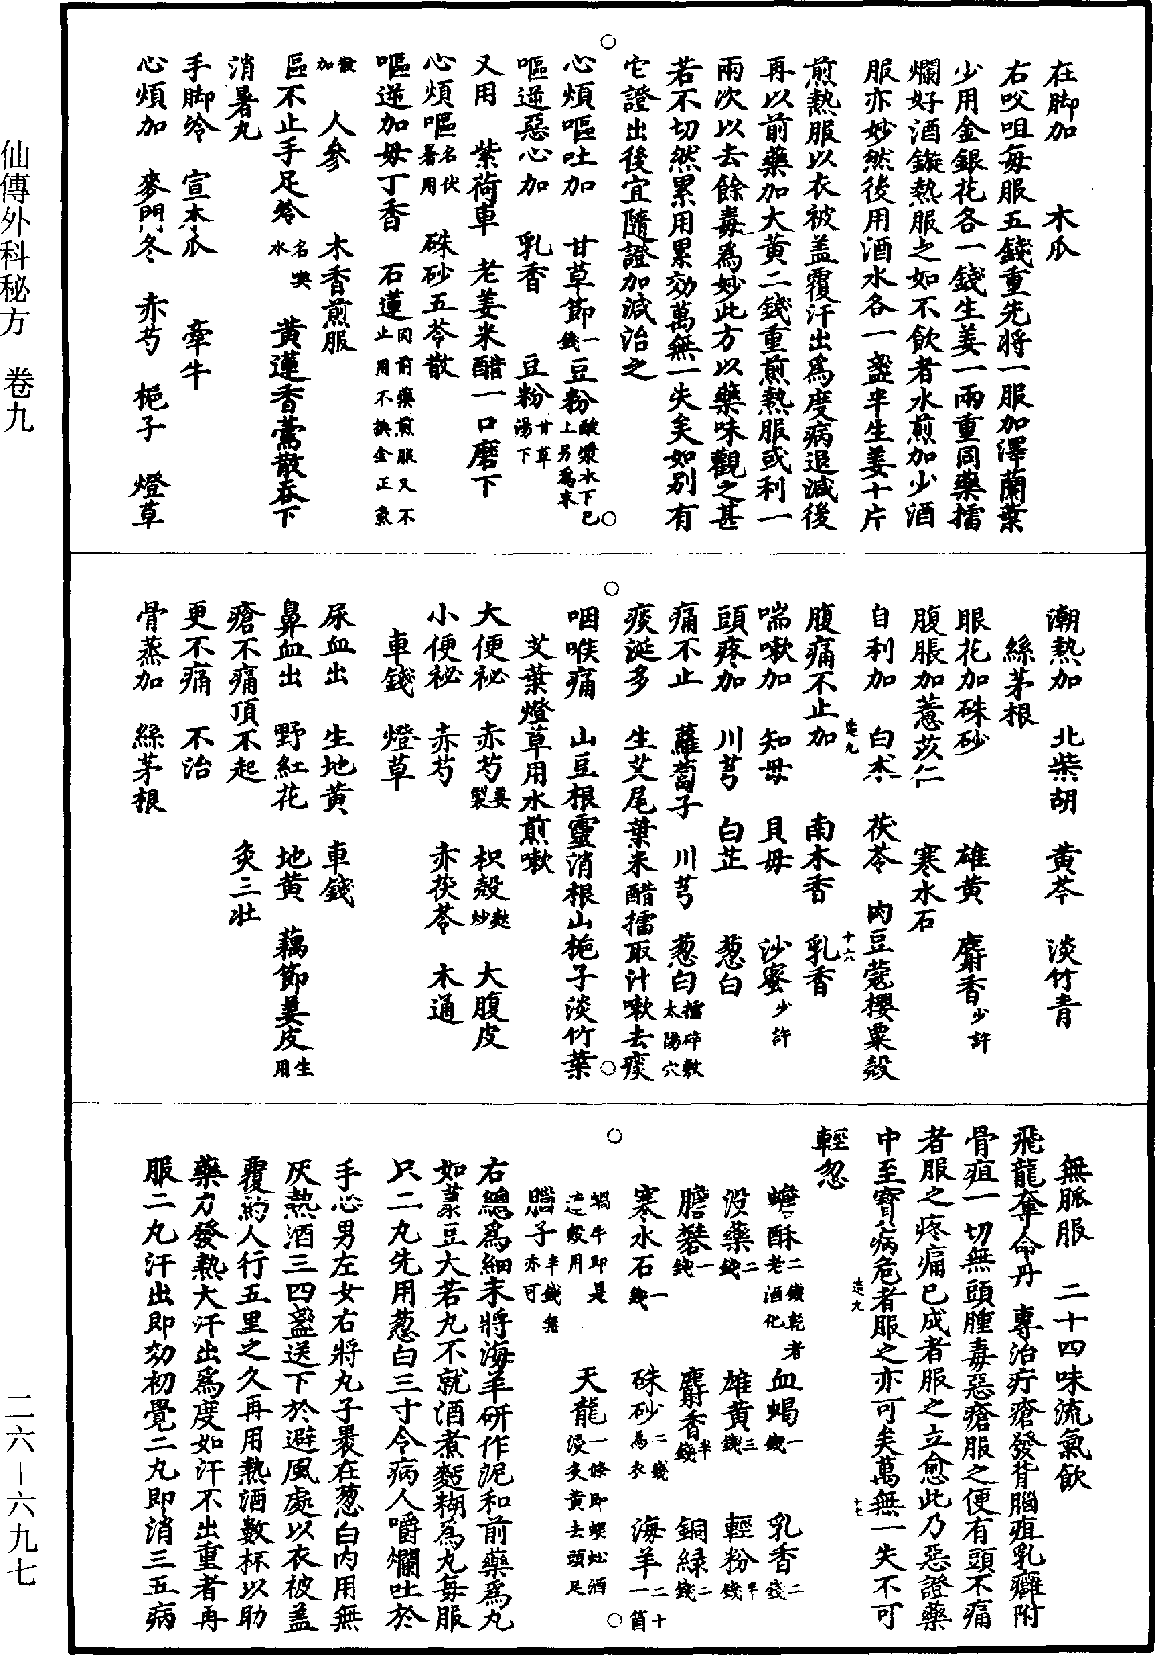 在脚加　木瓜
右㕮咀每服五錢重先將一服加澤蘭葉
少用金銀花各一錢生姜一兩重同藥擂
爛好酒鏇熱服之如不飲者水煎加少酒
服亦妙然後用酒水各一盞半生姜十片
煎熱服以衣被盖覆汗出爲度病退減後
再以前藥加大黃二錢重煎熱服或利一
兩次以去餘毒爲妙此方以藥味觀之甚
若不切然累用累効萬無一失矣如別有
它證出後宜隨證加減治之
心煩嘔吐加　甘草節一錢豆粉酸漿水下已上另爲末
嘔逆惡心加　乳香　豆粉甘草湯下
又用　紫荷車　老姜米醋一口磨下
心煩嘔名伏暑用　硃砂五苓散
嘔逆加毋丁香　石蓮同前藥煎服又不止用不換金正氣
散加　人參　木香煎服
嘔不止手足冷名噢水　黃連香薷散吞下
消暑丸
手脚冷　宣木瓜　牽牛
心煩加　麥門冬　赤芍　梔子　燈草
潮熱加　北柴胡　黃芩　淡竹青
絲茅根
眼花加硃砂　雄黃　麝香少許
腹脹加薏苡仁　寒水石
自利加　白朮　茯苓　肉豆蔻櫻粟殼
造九　十六
腹痛不止加　南木香　乳香
喘嗽加　知毋　貝毋　沙蜜少許
頭疼加　川芎　白芷　葱白
痛不止　蘿蔔子　川芎　葱白擂碎敷太陽穴
痰涎多　生艾尾葉米醋擂取汁嗽去痰
咽喉痛　山豆根靈消根山梔子淡竹葉
艾葉燈草用水煎嗽
大便秘　赤芍姜製　枳殼麩炒　大腹皮
小便秘　赤芍　赤茯苓　木通
車錢　燈草
尿血出　生地黃　車錢
鼻血出　野紅花　地黃　藕節姜皮生用
瘡不痛頂不起　灸三壯
更不痛　不治
骨蒸加　絲茅根
無脈服　二十四味流氣飲
飛龍奪命丹　專治疔瘡發背腦疽乳癰附
骨疽一切無頭腫毒惡瘡服之便有頭不痛
者服之疼痛已成者服之立愈此乃惡證藥
中至寶病危者服之亦可矣萬無一失不可
造九　十七
輕忽
蟾酥二錢乾者老酒化　血蝎一錢　乳香二錢
沒藥二錢　雄黃三錢　輕粉半錢
膽礬一錢　麝香半錢　銅緑二錢
寒水石一錢　硃砂二錢爲衣　海羊二十一箇
蝸牛即是連殼用　天龍一條即蜈蚣酒浸炙黃去頭足
腦子半錢無亦可
右總爲細末將海羊研作泥和前藥爲丸
如菉豆大若丸不就酒煮麪糊爲丸每服
只二丸先用葱白三寸令病人嚼爛吐於
手心男左女右將丸子裹在葱白内用無
灰熱酒三四盞送下於避風處以衣被盖
覆約人行五里之久再用熱酒數杯以助
藥力發熱大汗出爲度如汗不出重者再
服二丸汗出即効初覺二丸即消三五病
仙傳外科秘方　卷九
二六－六九七